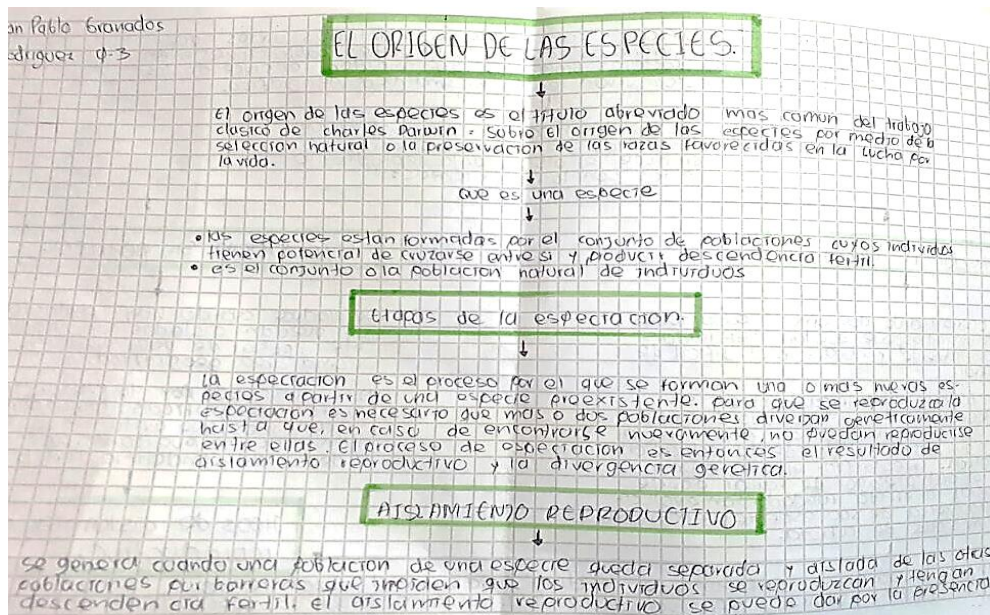 an Pablo Granados
odriguez 9-3
EL ORIGEN DE LAS ESPECIES.
El origen de las especies es el titulo abreviado mas comun del trabajo
clasico de charles Darwin: sobre El origen de las especies por medio de la
seleccion natural o la preservacion de las razas favorecidas en la lucha por
la vida.
que es una especie
• las especies estan formadas por el conjunto de poblaciones cuyos individuos
tienen potencial de cruzarse entre si y producir descendencia fertil.
• es el conjunto o la poblacion natural de individuos
Etapas de la especiacion.
La especiacion es el proceso por el que se forman una o mas nuevas es-
pecies a partir de una especie preexistente. para que se reproduzca la
especiacion es necesario que mas o dos poblaciones diverjan geneticamente
hasta que, en caso de encontrarse nuevamente, no puedan reproducirse
entre ellas. El proceso de especiacion es entonces el resultado de
aislamiento reproductivo y la divergencia genetica.
AISLAMIENTO REPRODUCTIVO
se genera cuando una poblacion de una especie queda separada y aislada de las otras
poblaciones por barreras que impiden que los individuos se reproduzcan y tengan
descendencia fertil. el aislamiento reproductivo se puede dar por la presencia